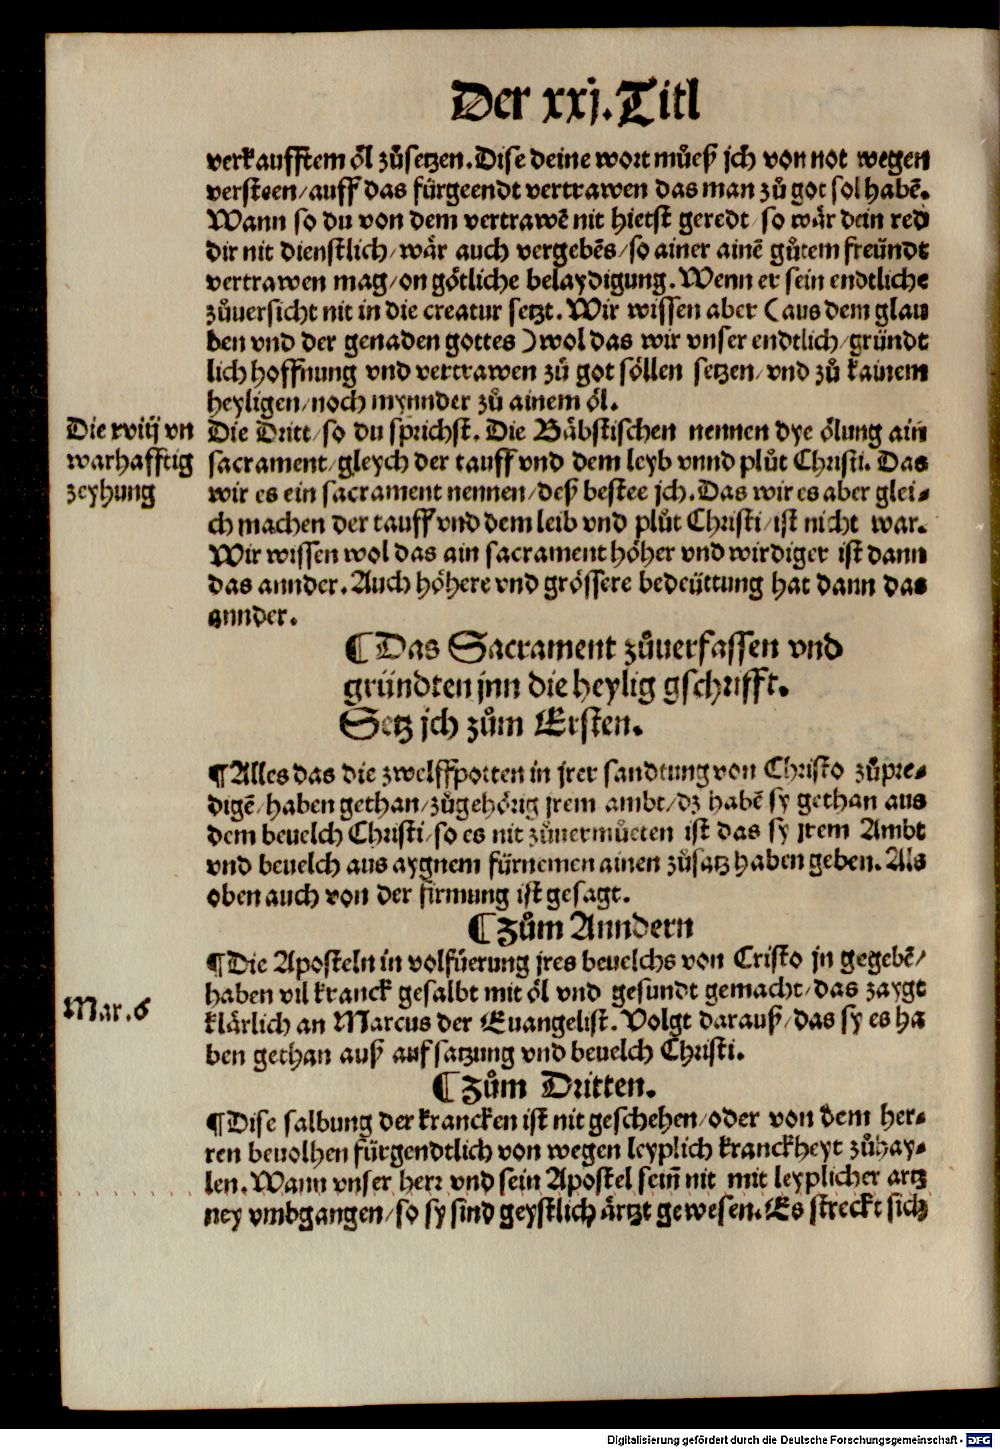 Der xxj. Titl
verkaufftem öl zůsetzen. Dise deine wort můeß jch von not wegen
versteen/auff das fürgeendt vertrawen das man zů got sol habē.
Wann so du von dem vertrawē nit hietst geredt/so wär dein red
dir nit dienstlich/wär auch vergebēs/so ainer ainē gůtem freündt
vertrawen mag/on götliche belaydigung. Wenn er sein endtliche
zůuersicht nit in die creatur setzt. Wir wissen aber (aus dem glau
ben vnd der genaden gottes) wol das wir vnser endtlich/gründt
lich hoffnung vnd vertrawen zů got söllen setzen/vnd zů kainem
heyligen/noch mynnder zů ainem öl.
Die xviij vn
warhafftig
zeyhung
Die Dritt/so du sprichst. Die Bäbstischen nennen dye ölung ain
sacrament/gleych der tauff vnd dem leyb vnnd plůt Christi. Das
wir es ein sacrament nennen/deß bestee jch. Das wir es aber glei⸗
ch machen der tauff vnd dem leib vnd plůt Christi/ist nicht war.
Wir wissen wol das ain sacrament höher vnd wirdiger ist dann
das annder. Auch höhere vnd grössere bedeüttung hat dann das
annder.
¶Das Sacrament zůuerfassen vnd
gründten jnn die heylig gschrifft.
Setz jch zům Ersten.
¶Alles das die zwelffpotten in jrer sandtung von Christo zůpre⸗
digē/haben gethan/zůgehörig jrem ambt/dz habē sy gethan aus
dem beuelch Christi/so es nit zůuermůeten ist das sy jrem Ambt
vnd beuelch aus aygnem fürnemen ainen zůsatz haben geben. Als
oben auch von der firmung ist gesagt.
¶Zům Anndern
¶Die Aposteln in volfüerung jres beuelchs von Cristo jn gegebē/
haben vil kranck gesalbt mit öl vnd gesundt gemacht/das zaygt
Mar. 6
klärlich an Marcus der Euangelist. Volgt darauß/das sy es ha
ben gethan auß aufsatzung vnd beuelch Christi.
¶Zům Dritten.
¶Dise salbung der krancken ist nit geschehen/oder von dem her⸗
ren beuolhen fürgendtlich von wegen leyplich kranckheyt zůhay⸗
len. Wann vnser herr vnd sein Apostel sein̄ nit mit leyplicher artz
ney vmbgangen/so sy sind geystlich ärtzt gewesen. Es streckt sich
Digitalisierung gefördert durch die Deutsche Forschungsgemeinschaft - DFG